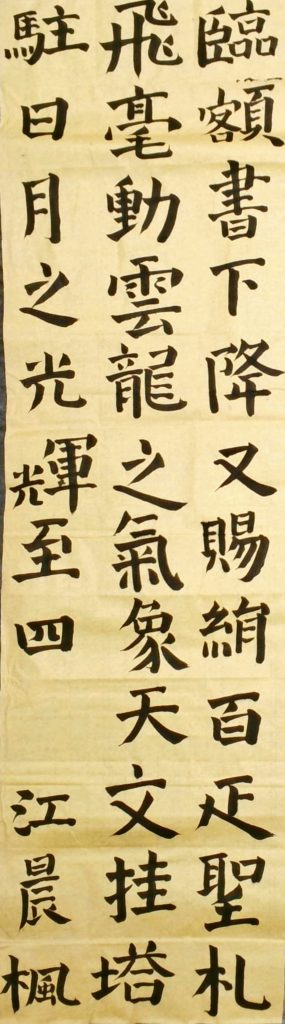 臨額書下降又賜絹百疋聖札
飛毫動雲龍之氣象天文挂塔
駐日月之光輝至四
江晨楓